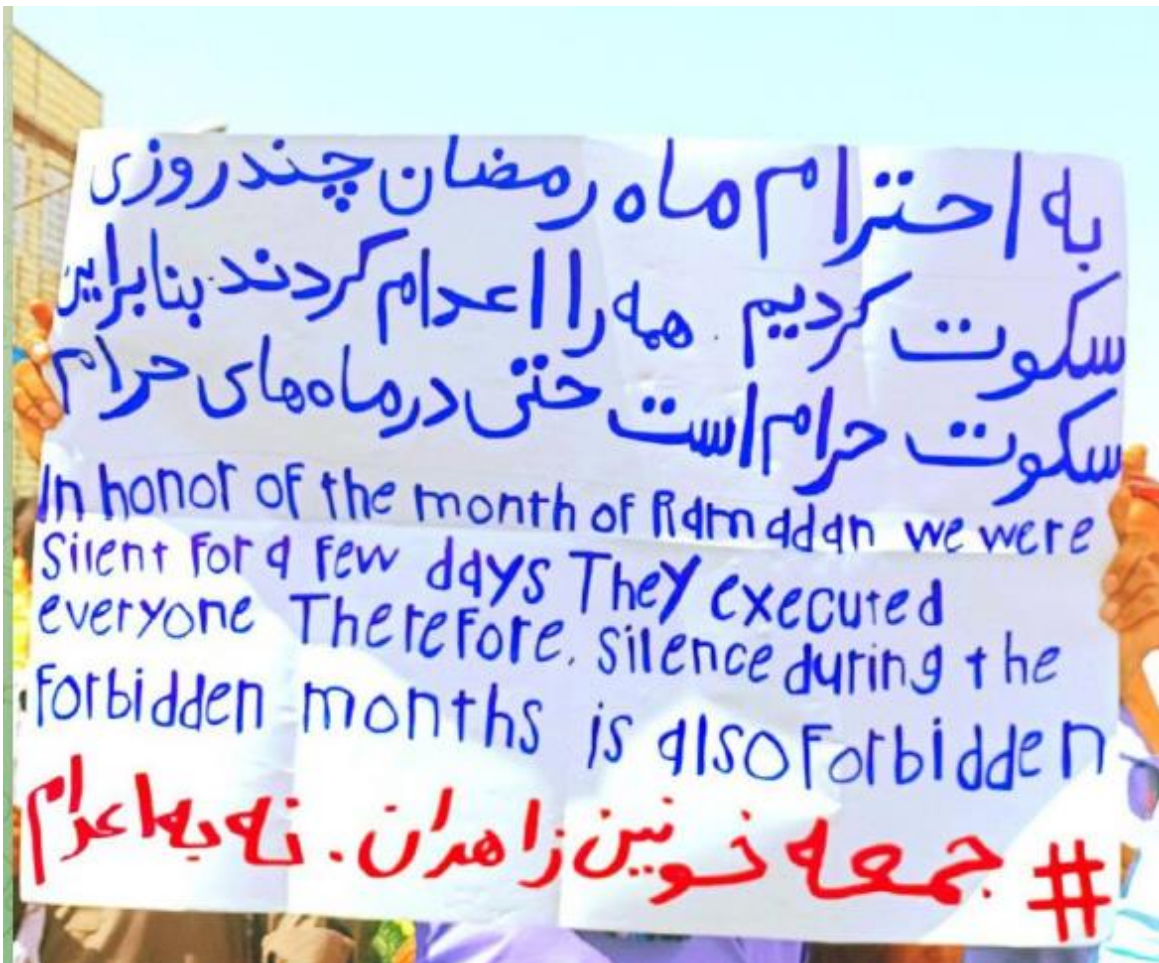 به احترام ماه رمضان چند روزی
سکوت کردیم. همه را اعدام کردند. بنابراین
سکوت حرام است حتی در ماه‌های حرام
In honor of the month of Ramadan we were
Silent for a few days They executed
everyone Therefore. silence during the
forbidden months is also forbidden
# جمعه خونین زاهدان. نه به اعدام